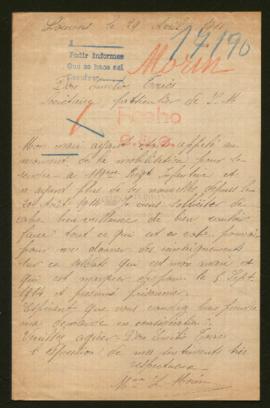 le 29 Août 1915
17190
A
Pedir Informes
Que se hace así
Morin
Don Emilio
Secrétaire particulier de S. M.
Fecho
Mon mari ayant été appelé au
moment de la mobilisation pour le
service Régt Infanterie et
n'ayant plus de ses nouvelles depuis le
30 Août 1914 je viens solliciter de
votre bienveillance de bien vouloir
faire tout ce qui est en votre pouvoir
pour me donner des renseignements
sur ce soldat qui est mon mari et
qui est manquant depuis le 6 Sept
1914 et présumé prisonnier.
Espérant que vous voudrez bien prendre
ma demande en considération.
Veuillez agréer Don Emilio
l'expression de mes sentiments très
respectueux
Mme L. Morin